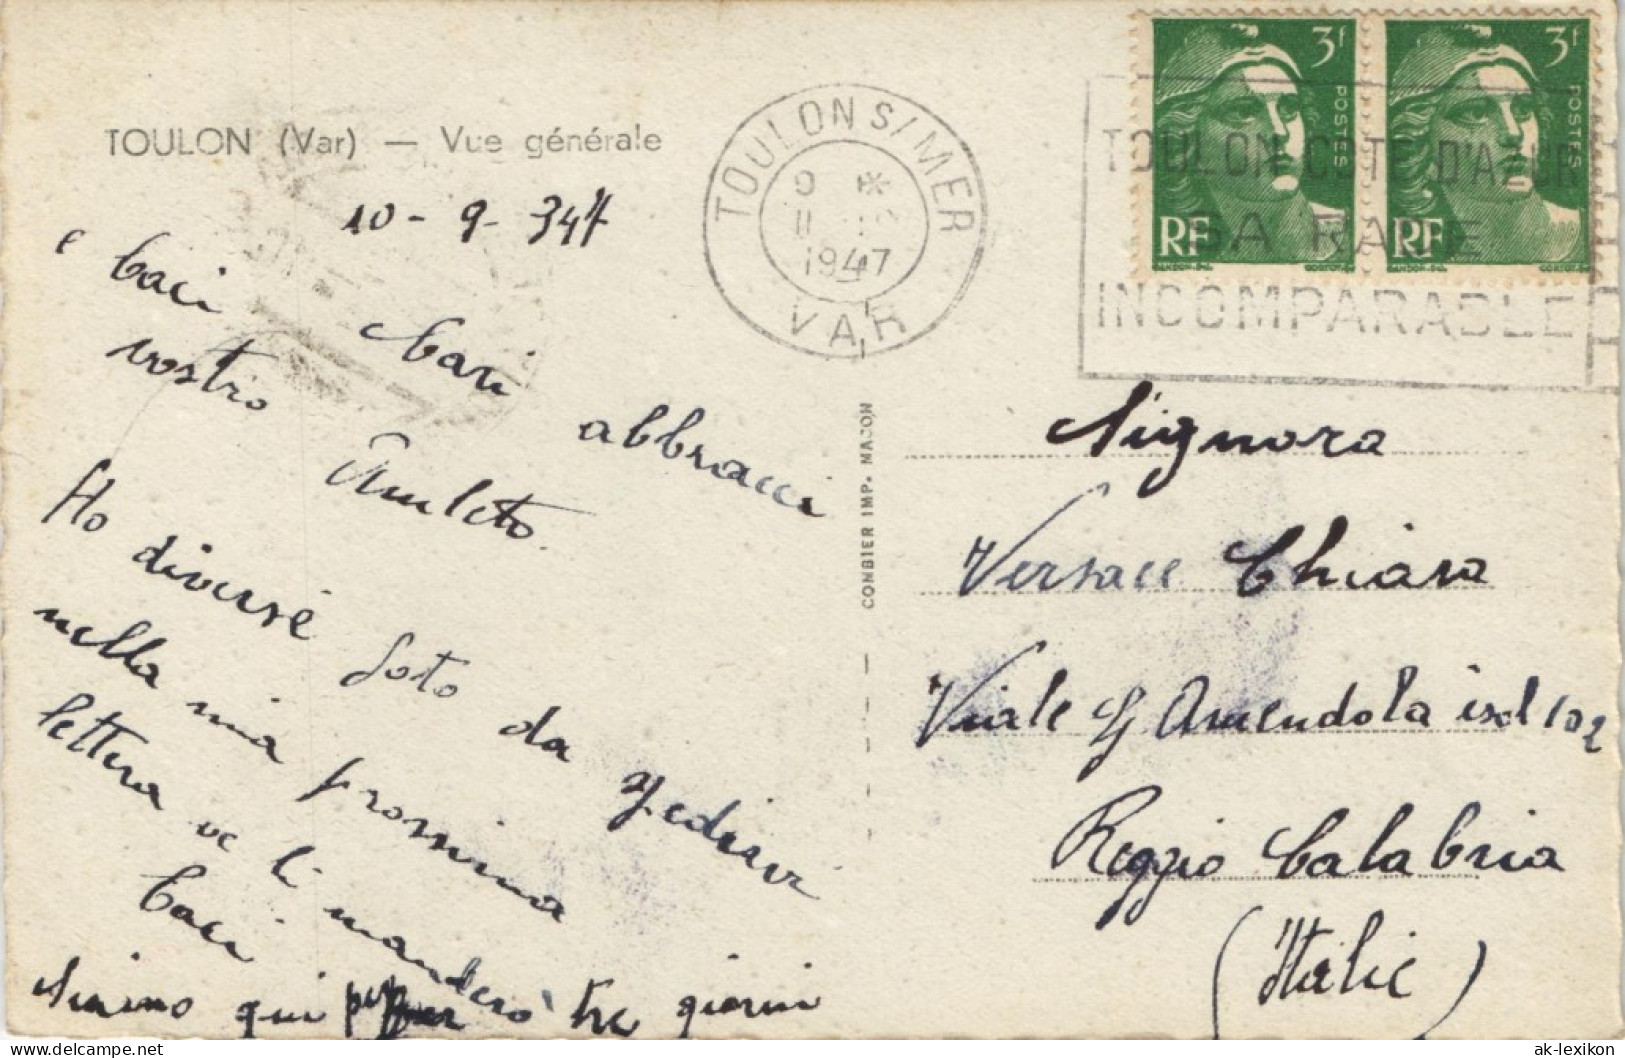 TOULON (Var) — Vue générale
10-9-347
TOULON S/MER
9 *
11
1947
VAR
3f
POSTES
RF
3f
POSTES
RF
TOULON COTE D'AZUR
SA RADE
INCOMPARABLE
e baci cari abbracci
vostro Amleto
Ho diverse foto da
nella mia prossima
lettera ve l'manderò
baci
Siamo qui per tre giorni
COMBIER IMP. MACON
Signora
Versace Chiara
Viale G Amendola isol 102
Reggio Calabria
(Italie)
ak-lexikon
www.delcampe.net